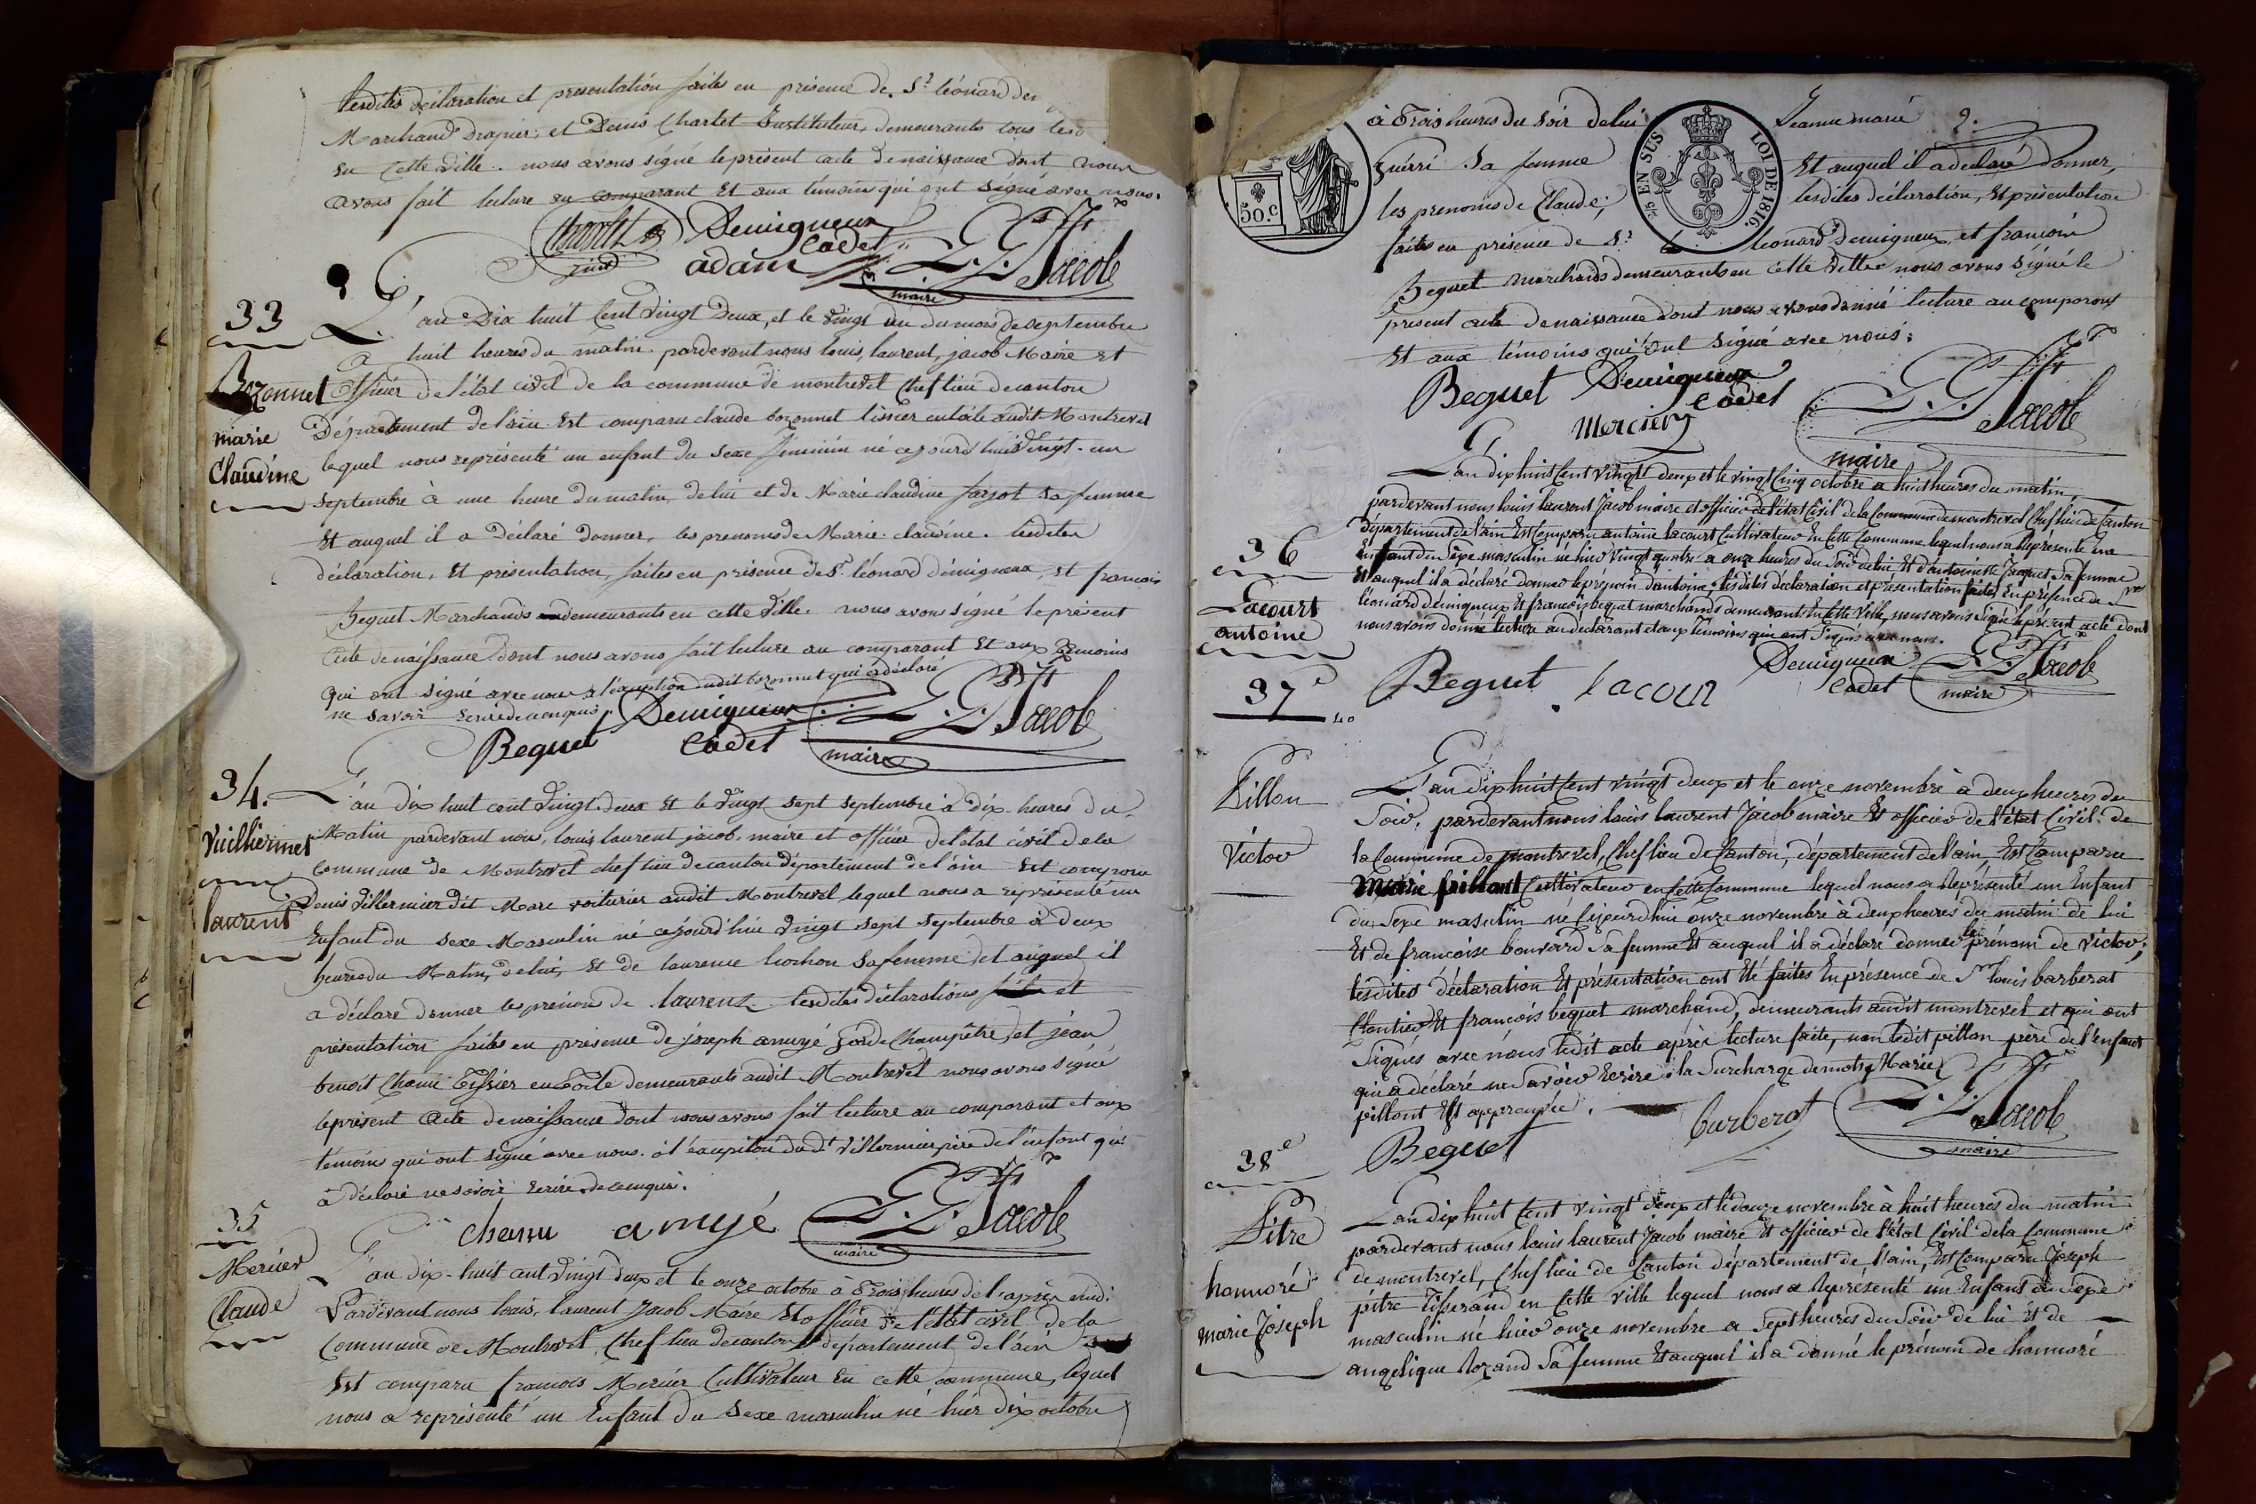 lesdites déclaration et présentation faites en présence de Sr léonard
Marchand drapier, et Denis Chartet Instituteur, demeurants tous
En Cette Ville. nous avons signé le présent acte de naissance dont nous
avons fait lecture au comparant Et aux témoins qui ont signé avec nous.
Demigneux
adam Cadet L. L. Jacob
maire
33
L'an Dix huit Cent Vingt Deux, et le Vingt un du mois de Septembre
à huit heures du matin pardevant nous louis, laurent, jacob Maire Et
Bozonnet
officier de l'état civil de la commune de montrevel Chef lieu de canton
Département de l'ain Est comparu claude bozonnet tissier en toile audit Montrevel
marie
lequel nous représenté un enfant du Sexe féminin né cejourd'hui Vingt-un
Claudine
Septembre à une heure du matin, de lui et de Marie claudine farjot Sa femme
Et auquel il a Déclaré Donner, les prenoms de Marie claudine. lesdites
déclaration, Et présentation, faites en présence de Sr léonard démigneux Et francois
Beguet Marchands demeurants en cette Ville. nous avons signé le présent
acte de naissance dont nous avons fait lecture au comparant Et aux témoins
qui ont signé avec nous à l'éxception dudit bozonnet qui a déclaré
ne savoir Ecrire de ce enquis. Demigneux
Beguet Cadet L. L. Jacob
maire
34.
L'an dix huit cent Vingt-deux Et le Vingt Sept Septembre à dix heures du
Vuilliermet
Matin pardevant nous, louis laurent jacob, maire et officier de l'état civil de la
Commune de Montrevel chef lieu de canton département de l'ain Est comparu
Denis Villermier dit Marc voiturier audit Montrevel lequel nous a représenté un
laurent
Enfant du Sexe Masculin né cejourd'hui Vingt Sept Septembre à deux
heures du Matin, de lui, Et de laurence lochon Sa femme et auquel il
a déclaré donner le prénom de laurent lesdites déclarations et
présentation faites en présence de joseph amyé garde Champêtre, et jean
benoit Chanu Tissier en Toile demeurants audit Montrevel nous avons signé
le présent Acte de naissance dont nous avons fait lecture au comparant et aux
témoins qui ont signé avec nous. à l'éxception dudt Villermier père de l'enfant qui
a déclaré ne savoir Ecrire de ce enquis.
chanu amyé L. L. Jacob
maire
35
Mercier
Claude
L'an dix-huit cent Vingt deux et le onze octobre à Trois heures de l'après midi
Pardevant nous louis, laurent Jacob Maire Et officier de l'état civil de la
Commune de Montrevel, Chef lieu de canton, département de l'ain
Est comparu francois Mercier Cultivateur En cette commune, lequel
nous a représenté un Enfant du Sexe masculin né hier Dix octobre
à Trois heures du Soir De lui Jeanne marie
EN SUS
LOI DE 1816
50.c
Guérri Sa femme Et auquel il a déclaré Donner,
les prenoms de Claude; lesdites déclaration, Et présentation
faites en présence de Sr léonard Demigneux, et francois
Beguet marchands demeurants en cette Ville nous avons Signé le
présent acte de naissance dont nous avons donné lecture au comparant
Et aux témoins qui ont signé avec nous.
Beguet Demigneux Cadet
Mercier L. L. Jacob
maire
36
Lacourt
antoine
L'an dix huit Cent vingt deux et le vingt Cinq octobre à huit heures du matin
pardevant nous louis laurent Jacob maire et officier de l'état Civil de la Commune de montrevel Chef lieu de Canton
département de l'ain Est Comparu antoine lacourt Cultivateur en Cette Commune lequel nous a Représenté un
Enfant du Sexe masculin né hier vingt quatre à onze heures du Soir de lui Et d'antoinette Jaquet Sa femme
Et auquel il a déclaré donner le prénom d'antoine, lesdites déclaration et présentation faites En présence de Srs
léonard démigneux Et francois beguet marchands demeurants En Cette Ville, nous avons Signé le présent acte dont
nous avons donné lecture au déclarant et aux témoins qui ont Signé avec nous.
Beguet lacour Demigneux Cadet L. L. Jacob
maire
37e
Pillon
Victor
L'an dix huit Cent vingt deux et le onze novembre à deux heures du
Soir, pardevant nous louis laurent Jacob maire Et officier de l'état Civil de
la Commune de montrevel, Chef lieu de Canton, département de l'ain, Est Comparu
Marie pillont Cultivateur en Cette Commune lequel nous a Représenté un Enfant
du Sexe masculin né Cejourd'hui onze novembre à deux heures du matin de lui
Et de françoise bouvard Sa femme Et auquel il a déclaré donner le prénom de victor,
lesdites déclaration Et présentation ont été faites En présence de Sr louis barberat
Et françois beguet marchand, demeurants audit montrevel et qui ont
Signés avec nous ledit acte après lecture faite, non ledit pillon père de l'enfant
qui a déclaré ne Savoir Ecrire. la Surcharge des mots Marie
pillont Est approuvée.
Beguet Barberat L. L. Jacob
maire
38e
Pitre
honnoré
Marie Joseph
L'an dix huit Cent vingt deux et le douze novembre à huit heures du matin
pardevant nous louis laurent Jacob maire Et officier de l'état Civil de la Commune
de montrevel, Chef lieu de Canton département de l'ain, Est Comparu Joseph
pitre Tisserand en Cette ville lequel nous a Représenté un Enfant du Sexe
masculin né hier onze novembre a Sept heures du Soir de lui Et de
angélique Rozand Sa femme Et auquel il a donné le prénom de honnoré